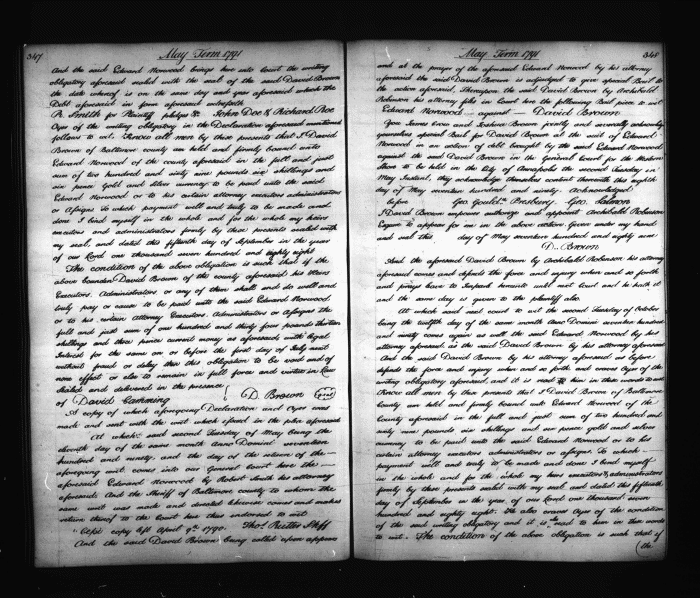 347 May Term 1791
And the said Edward Norwood brings here into Court the writing
obligatory aforesaid sealed with the seal of the said David Brown
the date whereof is on the same day and year aforesaid which the
Debt aforesaid in form aforesaid
R. Smith for Plaintiff pledges &c John Doe & Richard Roe
Oyer of the writing obligatory in the Declaration aforesaid mentioned
follows to wit. Know all men by these presents that I David
Brown of Baltimore County am held and firmly bound unto
Edward Norwood of the county aforesaid in the full and just
sum of two hundred and sixty nine pounds six shillings and
six pence Gold and Silver money to be paid unto the said
Edward Norwood or to his certain attorney executors administrators
or assigns To which payment well and truly to be made and
done I bind myself in the whole and for the whole my heirs
executors and administrators firmly by these presents sealed with
my seal, and dated this fifteenth day of September in the year
of our Lord one thousand seven hundred and eighty eight
The condition of the above obligation is such that if the
above bounden David Brown of the county aforesaid his Heirs
Executors Administrators or any of them shall and do well and
truly pay or cause to be paid unto the said Edward Norwood
or to his certain Attorney Executors Administrators or assigns the
full and just sum of one hundred and thirty four pounds thirteen
shillings and three pence current money as aforesaid with legal
Interest for the same on or before the first day of July next
without fraud or delay then this obligation to be void and of
none effect or else to remain in full force and virtue in Law
Sealed and delivered in the presence
of David Camming D. Brown (Seal)
A copy of which aforegoing Declaration and Oyer was
made and sent with the writ which issued in the plea aforesaid
At which said second Tuesday of May being the
eleventh day of the same month Anno Domini seventeen
hundred and ninety, and the day of the return of the
aforegoing writ comes into our General Court here the
aforesaid Edward Norwood by Robert Smith his attorney
aforesaid And the Sheriff of Baltimore county to whom the
same writ was made and directed likewise comes and makes
return thereof to the Court here thus endorsed to wit
Cepi copy left April 9th 1790. Thos. Rutter Shff
And the said David Brown being called upon appears
May Term 1791 348
and at the prayer of the aforesaid Edward Norwood by his attorney
aforesaid the said David Brown is adjudged to give special Bail to
the action aforesaid, Thereupon the said David Brown by Archibald
Robinson his attorney files in Court here the following Bail piece to wit
Edward Norwood against David Brown
You James and Joshua Brown and each severally acknowledge
yourselves special Bail for David Brown at the suit of Edward
Norwood in an action of debt brought by the said Edward Norwood
against the said David Brown in the General Court for the Western
Shore to be held in the City of Annapolis the second Tuesday in
May Instant, they acknowledge themselves content therewith this eighth
day of May seventeen hundred and ninety. Acknowledged
before Geo. Gouldsh. Presbury. Geo. Salmon
I David Brown impower authorize and appoint Archibald Robinson
Esquire to appear for me in the above action Given under my hand
and seal this day of May seventeen hundred and eighty nine
D. Brown
And the aforesaid David Brown by Archibald Robinson his attorney
aforesaid comes and defends the force and injury when and so forth
and prays leave to Imparl hereunto until next Court and he hath it
and the same day is given to the plaintiff also.
At which said next court to wit the second Tuesday of October
being the twelfth day of the same month Anno Domini seventeen hundred
and ninety come again as well the said Edward Norwood by his
attorney aforesaid as the said David Brown by his attorney aforesaid
And the said David Brown by his attorney aforesaid as before
defends the force and injury when and so forth and craves Oyer of the
writing obligatory aforesaid, and it is read to him in these words to wit
Know all men by these presents that I David Brown of Baltimore
County am held and firmly bound unto Edward Norwood of the
County aforesaid in the full and just sum of two hundred and
sixty nine pounds six shillings and six pence gold and silver
money to be paid unto the said Edward Norwood or to his
certain attorney executors administrators or assigns To which
payment well and truly to be made and done I bind myself
in the whole and for the whole my heirs executors & administrators
firmly by these presents sealed with my seal, and dated this fifteenth
day of September in the year of our Lord one thousand seven
hundred and eighty eight. He also craves Oyer of the condition
of the said writing obligatory and it is read to him in these words
to wit. The condition of the above obligation is such that if
(the